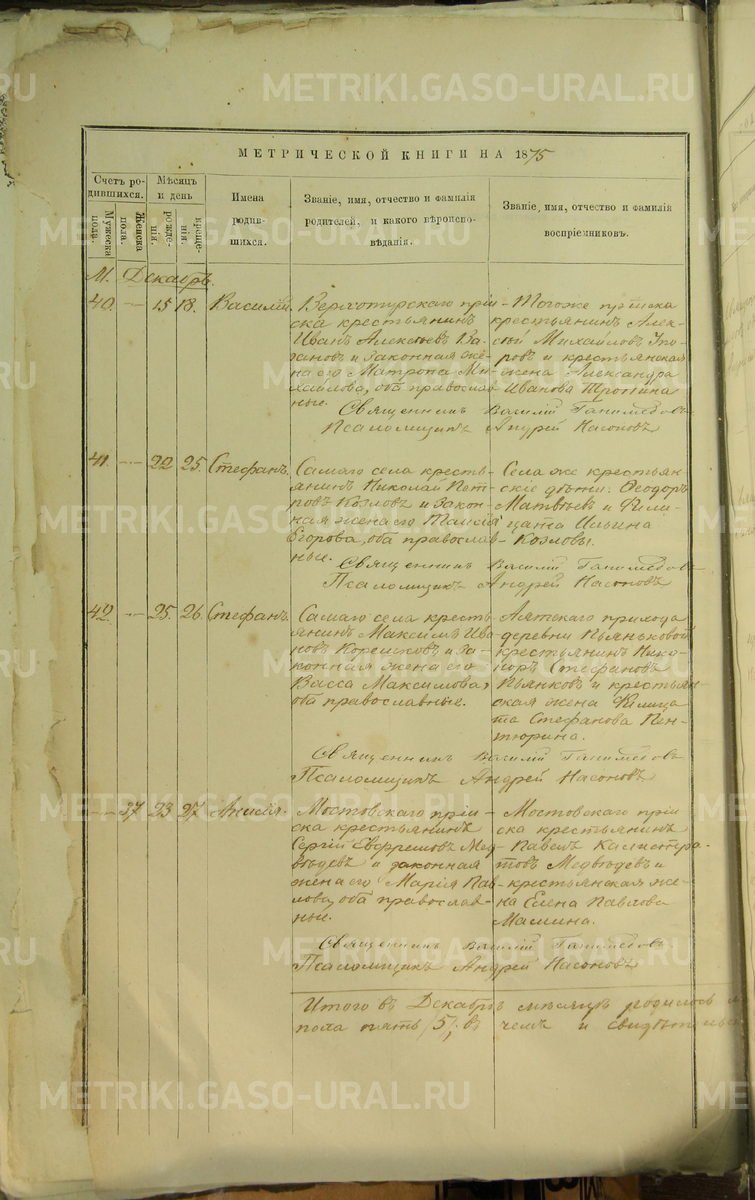 METRIKI.GASO-URAL.RU
МЕТРИЧЕСКОЙ КНИГИ НА 1875
Счетъ родившихся.
Мужеска пола.
Женска пола.
Мѣсяцъ и день
рожденія.
крещенія.
Имена родившихся.
Званіе, имя, отчество и фамилія родителей, и какого вѣроисповѣданія.
Званіе, имя, отчество и фамилія воспріемниковъ.
М. Декабрь.
40. — 15 18. Василій.
Верхотурскаго пріи-
ска крестьянинъ
Иванъ Алексѣевъ
и законная же-
на его Матрона Ми-
хайлова, оба православ-
ные.
Тогоже пріиска
крестьянинъ Алек-
сѣй Михайловъ
и крестьянская
жена Александра
Иванова Тропина
Священникъ Василій Ганимедовъ
Псаломщикъ Андрей Насоновъ
41. — 22 25. Стефанъ.
Самаго села кресть-
янинъ Николай Пет-
ровъ Козловъ и закон-
ная жена его Таисія
Егорова, оба православ-
ные.
Села же крестьян-
скіе дѣти: Ѳеодоръ
Матвѣевъ и Фели-
цата Ильина
Козловы.
Священникъ Василій Ганимедовъ
Псаломщикъ Андрей Насоновъ
42. — 25. 26. Стефанъ.
Самаго села кресть-
янинъ Максимъ Ива-
новъ и за-
конная жена его
Васса Максимова,
оба православные.
Аятскаго прихода
деревни Пьяньковой
крестьянинъ Ника-
норъ Стефановъ
Пьянковъ и крестьян-
ская жена Фелица-
та Стефанова Пен-
тюрина.
Священникъ Василій Ганимедовъ
Псаломщикъ Андрей Насоновъ
— 37 23 27. Анисія.
Мостовскаго пріи-
ска крестьянинъ
Сергій Евфремовъ Мед-
вѣдевъ и законная
жена его Марія Пав-
лова, оба православ-
ные.
Мостовскаго пріи-
ска крестьянинъ
Павелъ Калистра-
товъ Медвѣдевъ и
крестьянская же-
на Елена Павлова
Мамина.
Священникъ Василій Ганимедовъ
Псаломщикъ Андрей Насоновъ
Итого въ Декабрѣ мѣсяцѣ родилось
пола пять /5/, въ чемъ и